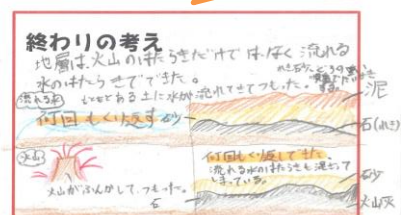 終わりの考え
地層は、火山のはたらきだけではなく流れる
水のはたらきでできた。
流れる水
もともとある土に水が流れてきてつもった。
何回もくり返す
砂
泥
石(れき)
火山
火山がふんかして、つもった。
石
何回もくり返してできた。
流れる水のはたらきも混ざって
しまっている。
砂
火山灰